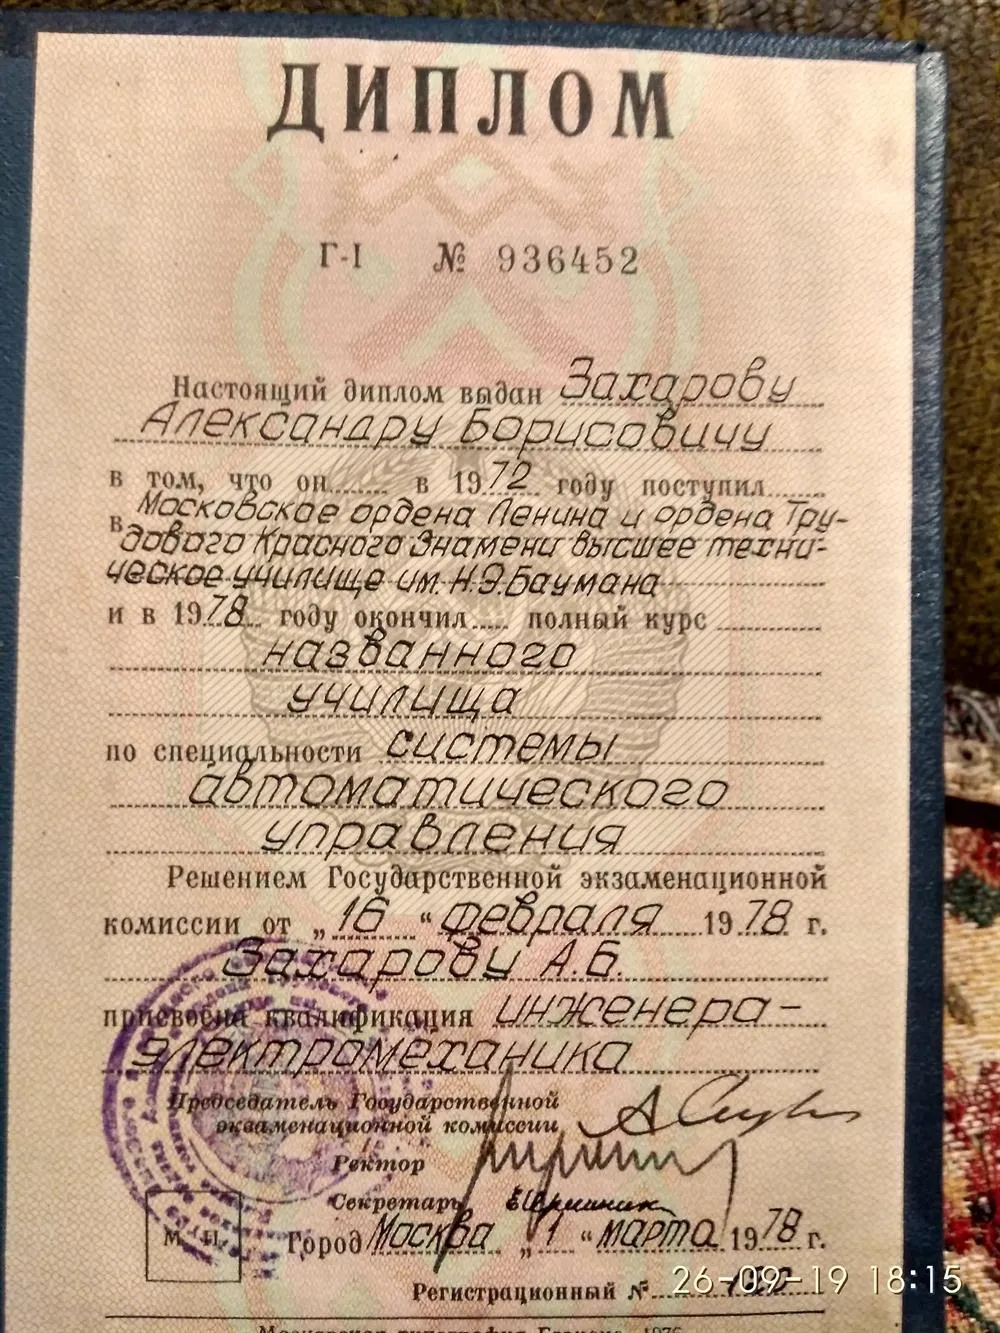 ДИПЛОМ
Г-I № 936452
Настоящий диплом выдан Захарову
Александру Борисовичу
в том, что он в 1972 году поступил
Московское ордена Ленина и ордена Тру-
в дового Красного Знамени высшее техни-
ческое училище им. Н.Э.Баумана
и в 1978 году окончил полный курс
названного
училища
по специальности системы
автоматического
управления
Решением Государственной экзаменационной
комиссии от „16“ февраля 1978 г.
Захарову А.Б.
присвоена квалификация инженера-
электромеханика
Председатель Государственной
экзаменационной комиссии
Ректор
Секретарь
М.П.
Город Москва „1“ марта 1978 г.
Регистрационный №
26-09-19 18:15